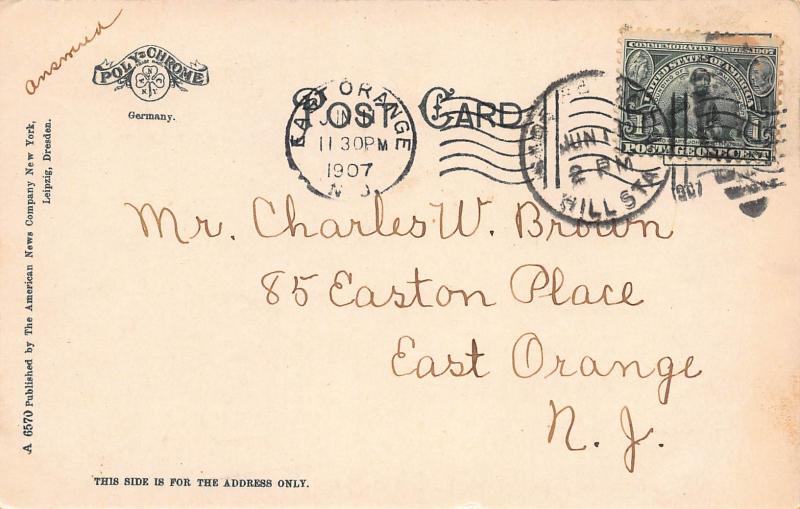 answered
POLY-CHROME
Germany.
POST CARD
EAST ORANGE
JUN
11 30PM
1907
N.J.
JUN 1
2 PM
HILL STA
1907
COMMEMORATIVE SERIES 1907
UNITED STATES OF AMERICA
1 1
POSTAGE ONE CENT
Mr. Charles W. Brown
85 Easton Place
East Orange
N. J.
A 6570 Published by The American News Company New York,
Leipzig, Dresden.
THIS SIDE IS FOR THE ADDRESS ONLY.